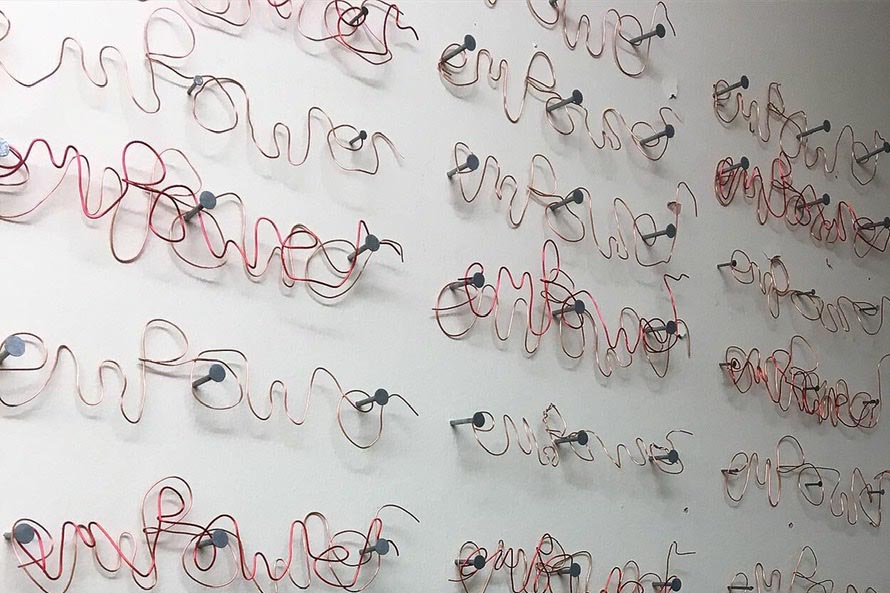 empower
empower
empower
empower
empower
empower
empower
empower
empower
empower
empower
empower
empower